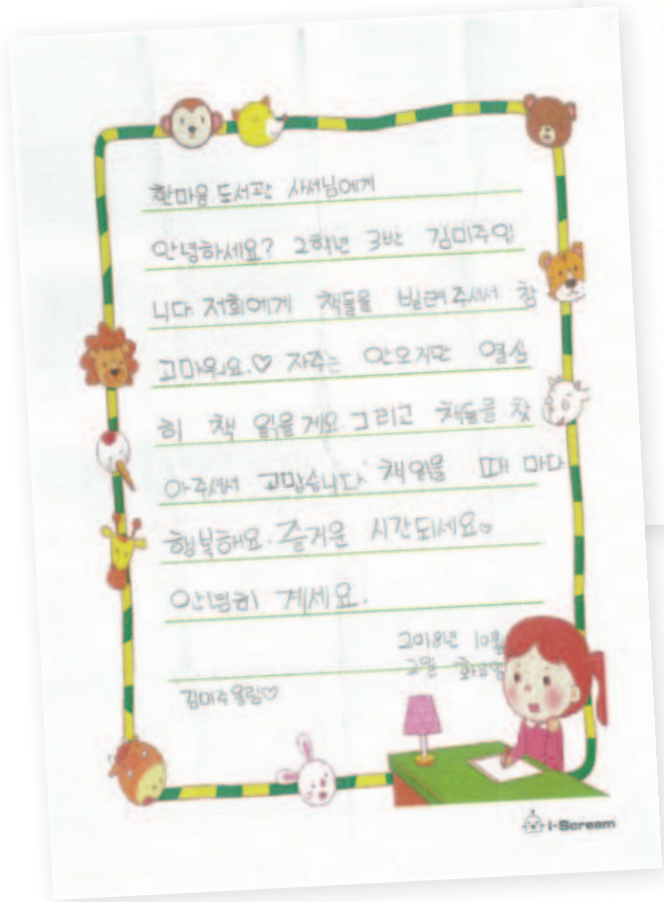 한마음 도서관 사서님에게
안녕하세요? 2학년 3반 김미주입
니다 저희에게 책들을 빌려주셔서 참
고마워요.♡ 자주는 안오지만 열심
히 책 읽을게요. 그리고 책들을 찾
아주셔서 고맙습니다 책읽을 때 마다
행복해요. 즐거운 시간되세요♡
안녕히 계세요.
2018년 10월
2일 화요일
김미주올림♡
i-Scream